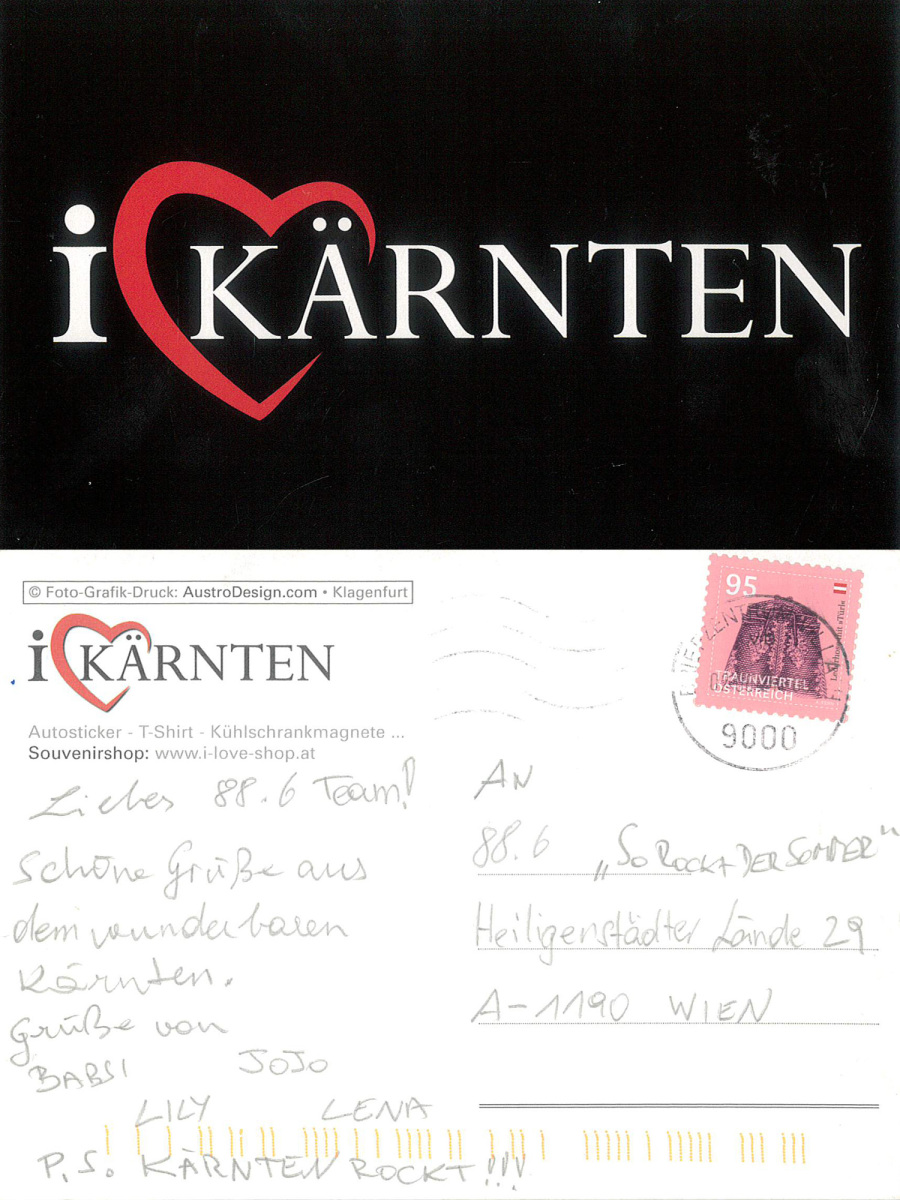 i KÄRNTEN
© Foto-Grafik-Druck: AustroDesign.com • Klagenfurt
i KÄRNTEN
Autosticker - T-Shirt - Kühlschrankmagnete ...
Souvenirshop: www.i-love-shop.at
Liebes 88.6 Team!
Schöne Grüße aus
dem wunderbaren
Kärnten.
Grüße von
BABSI JOJO
LILY LENA
P.S. KÄRNTEN ROCKT!!!
95
TRAUNVIERTEL
ÖSTERREICH
9000
AN
88.6 „SO ROCKT DER SOMMER"
Heiligenstädter Lände 29
A-1190 WIEN